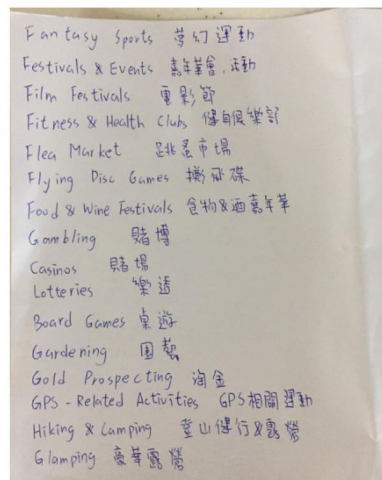 Fantasy Sports 夢幻運動
Festivals & Events 嘉年華會,活動
Film Festivals 電影節
Fitness & Health Clubs 健身俱樂部
Flea Market 跳蚤市場
Flying Disc Games 擲飛碟
Food & Wine Festivals 食物&酒嘉年華
Gambling 賭博
Casinos 賭場
Lotteries 樂透
Board Games 桌遊
Gardening 園藝
Gold Prospecting 淘金
GPS-Related Activities GPS相關運動
Hiking & Camping 登山健行&露營
Glamping 豪華露營